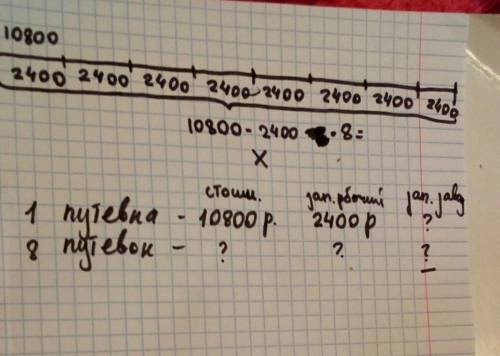 10800
2400 2400 2400 2400 2400 2400 2400 2400
10800 - 2400 · 8 =
x
стоим. зап. рбочий зап. завд
1 путевка - 10800 р. 2400 р ?
8 путевок - ? ? ?